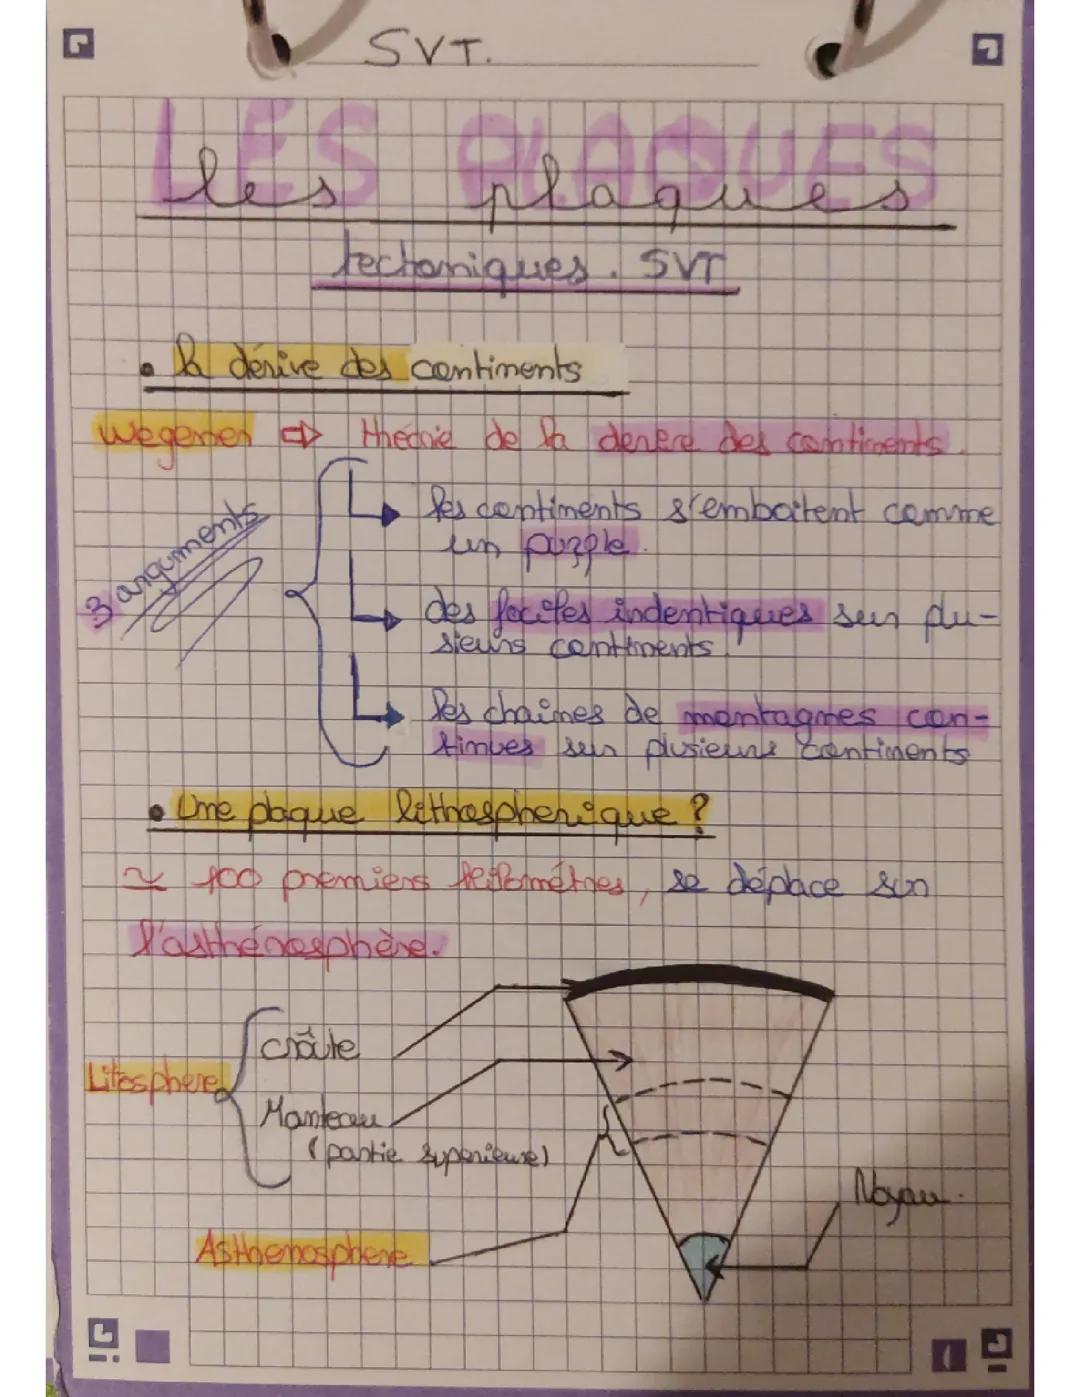 SVT.
LES PLAQUES
les plaques
tectoniques. SVT
• la dérive des continents
Wegener ⇨ théorie de la derere des continents.
3 arguments
les continents s'emboitent comme
un puzzle.
des fociles indentiques sur plu-
sieurs continents.
les chaines de montagnes con-
tinues sur plusieurs continents
• Une plaque lithospherique ?
≃ 100 premiers kilomètres, se déplace sur
l'asthénosphère.
Croûte
Litosphere
Manteau
(partie superieure)
Noyau.
Asthenosphere